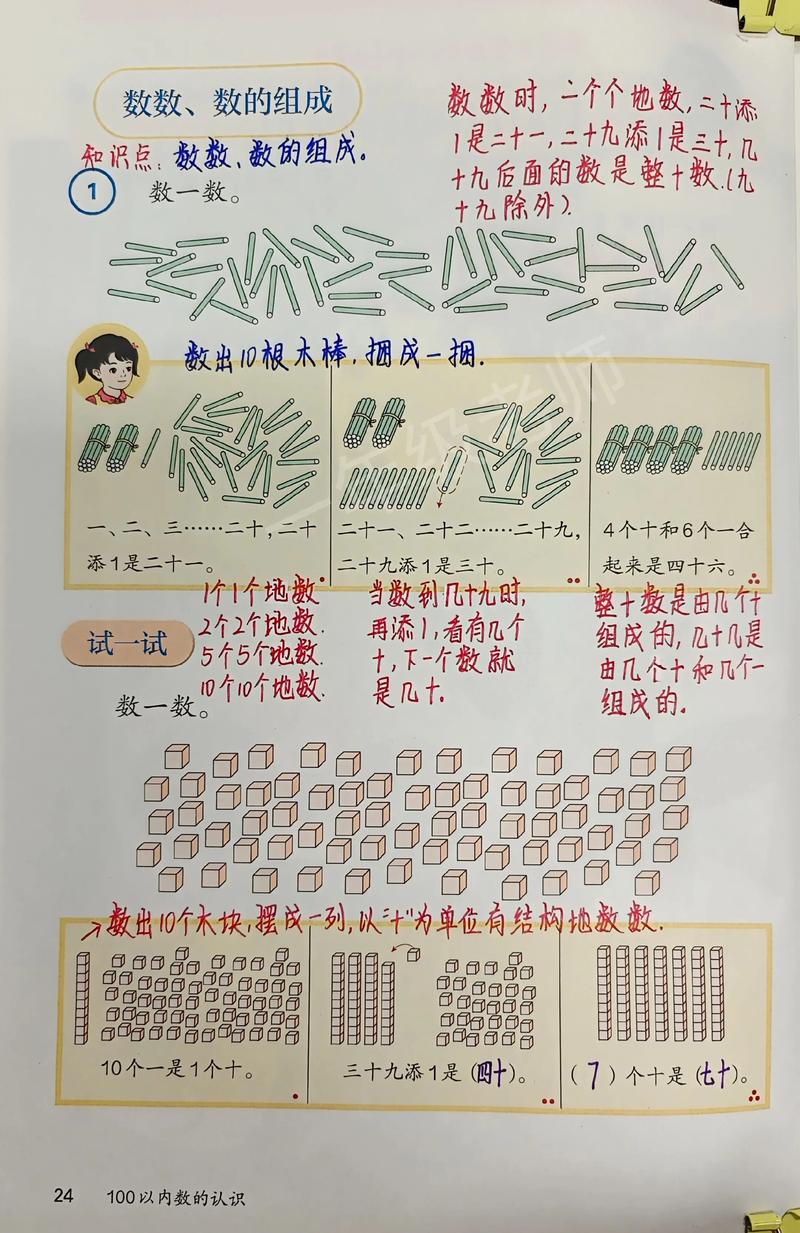 数数、数的组成
数数时，一个个地数，二十添
1是二十一，二十九添1是三十，几
十九后面的数是整十数.(九
十九除外).
知识点：数数、数的组成.
1 数一数。
数出10根木棒，捆成一捆.
一、二、三……二十，二十
添1是二十一。
二十一、二十二……二十九，
二十九添1是三十。
4个十和6个一合
起来是四十六。
一年级老师
1个1个地数
2个2个地数.
5个5个地数.
10个10个地数.
当数到几十九时，
再添1，看有几个
十，下一个数就
是几十.
整十数是由几个十
组成的，几十几是
由几个十和几个一
组成的.
试一试
数一数。
→数出10个木块，摆成一列，以“十”为单位有结构地数数.
10个一是1个十。
三十九添1是(四十)。
(7)个十是(七十)。
24 100以内数的认识